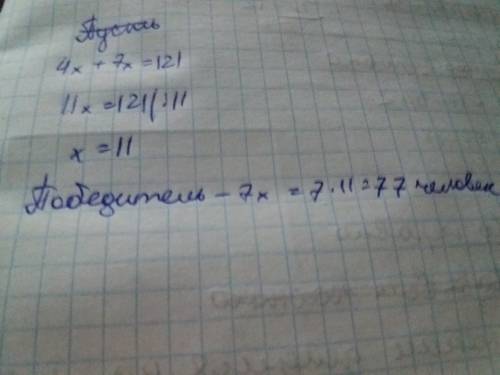 Пусть
4x + 7x = 121
11x = 121 |:11
x = 11
Победитель - 7x = 7·11 = 77 человек